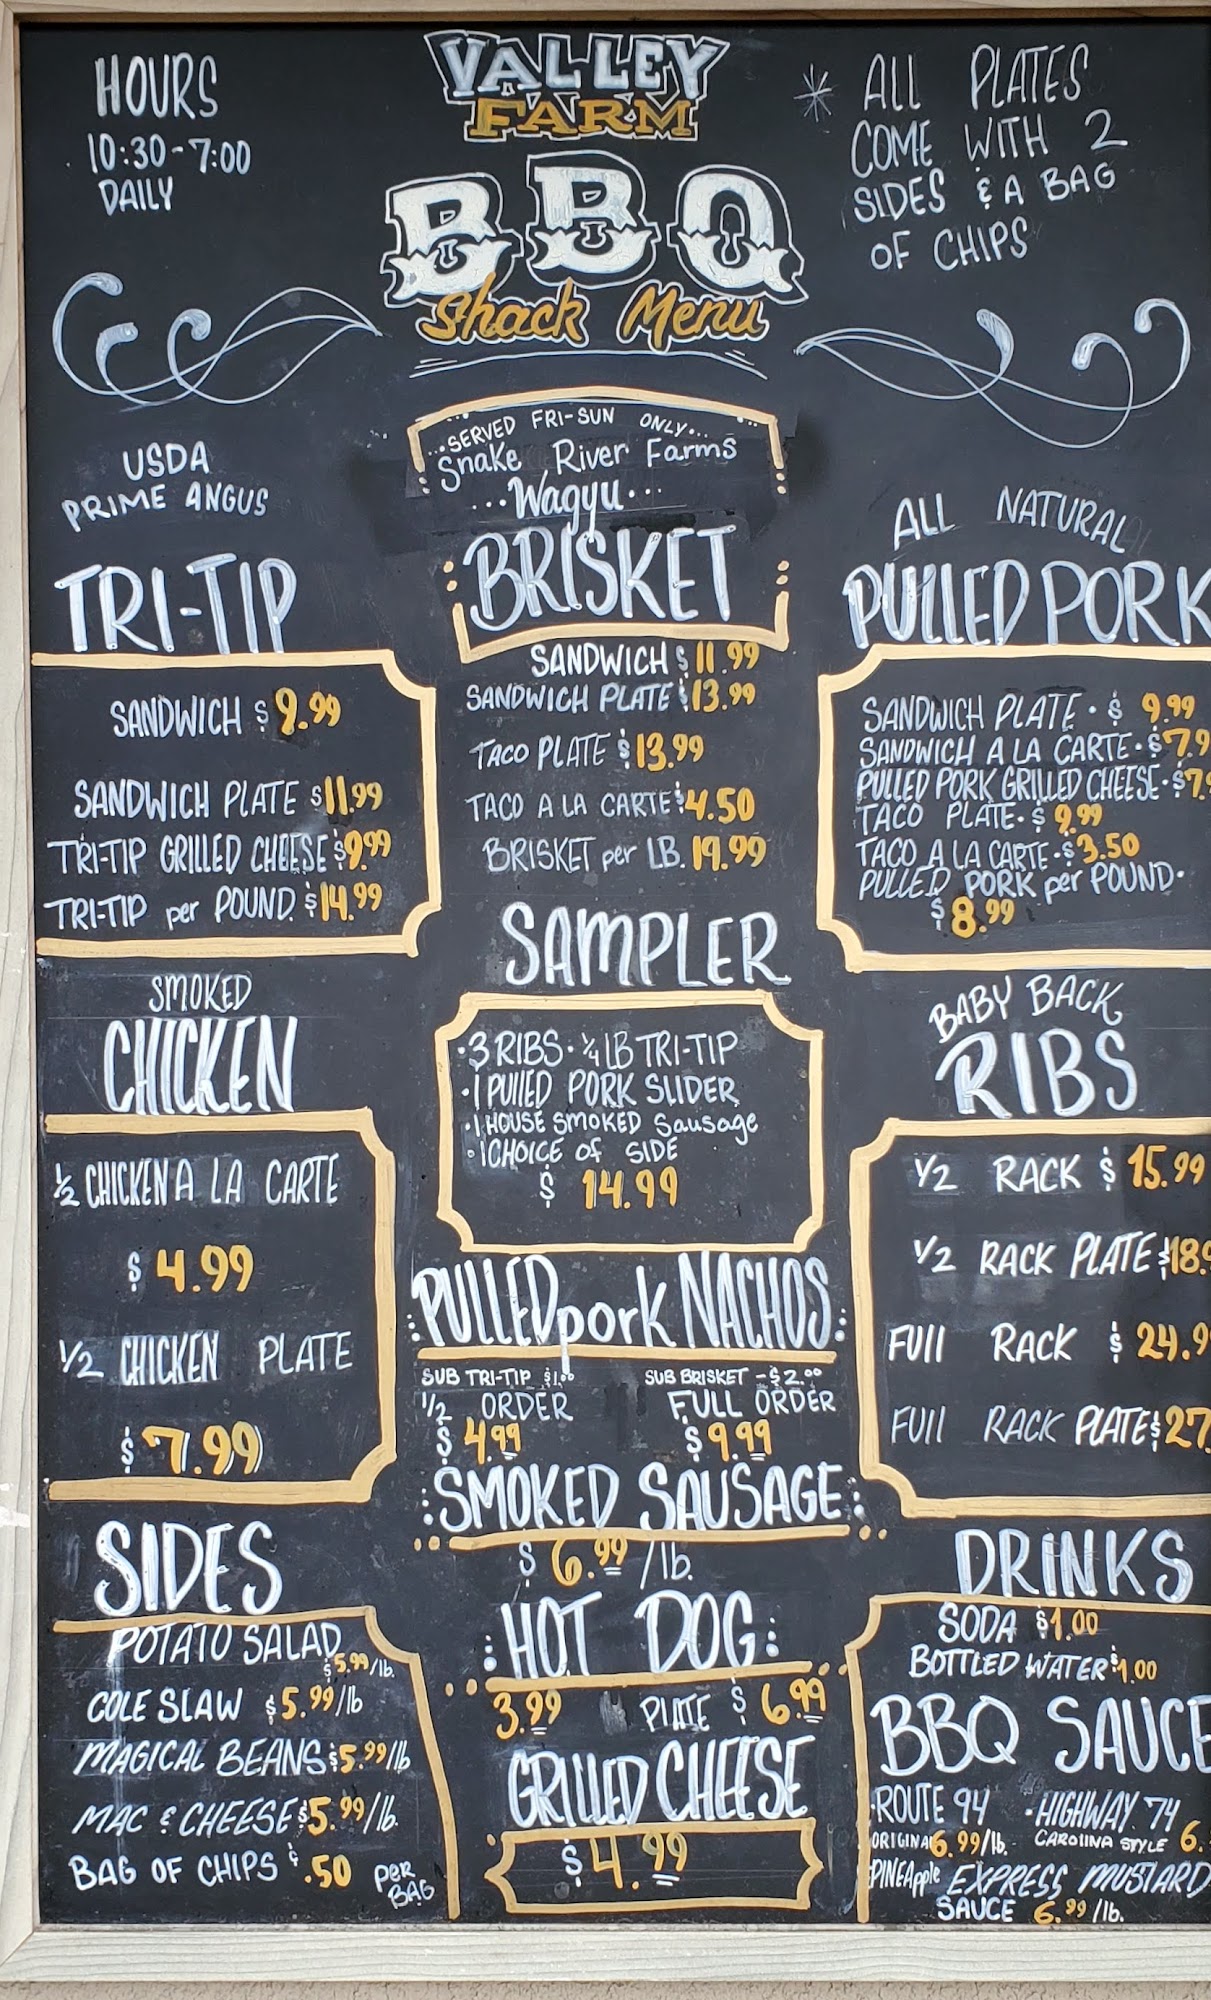 HOURS
10:30-7:00
DAILY
VALLEY
FARM
BBQ
Shack Menu
* ALL PLATES
COME WITH 2
SIDES & A BAG
OF CHIPS
USDA
PRIME ANGUS
TRI-TIP
SANDWICH $9.99
SANDWICH PLATE $11.99
TRI-TIP GRILLED CHEESE $9.99
TRI-TIP per POUND $14.99
...SERVED FRI-SUN ONLY...
Snake River Farms
...Wagyu...
BRISKET
SANDWICH $11.99
SANDWICH PLATE $13.99
TACO PLATE $13.99
TACO A LA CARTE $4.50
BRISKET per LB. 19.99
ALL NATURAL
PULLED PORK
SANDWICH PLATE · $ 9.99
SANDWICH A LA CARTE · $7.9
PULLED PORK GRILLED CHEESE · $7.9
TACO PLATE · $ 9.99
TACO A LA CARTE · $3.50
PULLED PORK per POUND ·
$8.99
SMOKED
CHICKEN
1/2 CHICKEN A LA CARTE
$4.99
1/2 CHICKEN PLATE
$7.99
SAMPLER
· 3 RIBS · 1/4 LB TRI-TIP
· 1 PULLED PORK SLIDER
· 1 HOUSE SMOKED Sausage
· 1 CHOICE of SIDE
$ 14.99
BABY BACK
RIBS
1/2 RACK $ 15.99
1/2 RACK PLATE $18.9
FULL RACK $ 24.9
FULL RACK PLATE $27.
PULLED pork NACHOS
SUB TRI-TIP $1.00 SUB BRISKET - $2.00
1/2 ORDER FULL ORDER
$4.99 $9.99
SMOKED SAUSAGE
$6.99/lb.
HOT DOG
3.99 PLATE $6.99
GRILLED CHEESE
$4.99
SIDES
POTATO SALAD
$5.99/lb.
COLE SLAW $5.99/lb
MAGICAL BEANS $5.99/lb
MAC & CHEESE $5.99/lb.
BAG OF CHIPS $.50 PER
BAG
DRINKS
SODA $1.00
BOTTLED WATER $1.00
BBQ SAUCE
· ROUTE 94 · HIGHWAY 74
ORIGINAL 6.99/lb. CAROLINA STYLE 6.
· PINEApple EXPRESS MUSTARD
SAUCE 6.99/lb.